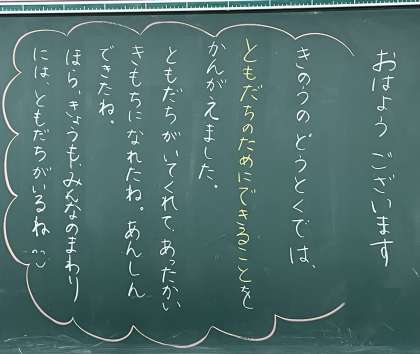 おはよう ございます
きのうの どうとくでは、
ともだちのためにできることを
かんがえました。
ともだちがいてくれて、あったかい
きもちになれたね。あんしん
できたね。
ほら、きょうも、みんなのまわり
には、ともだちがいるね